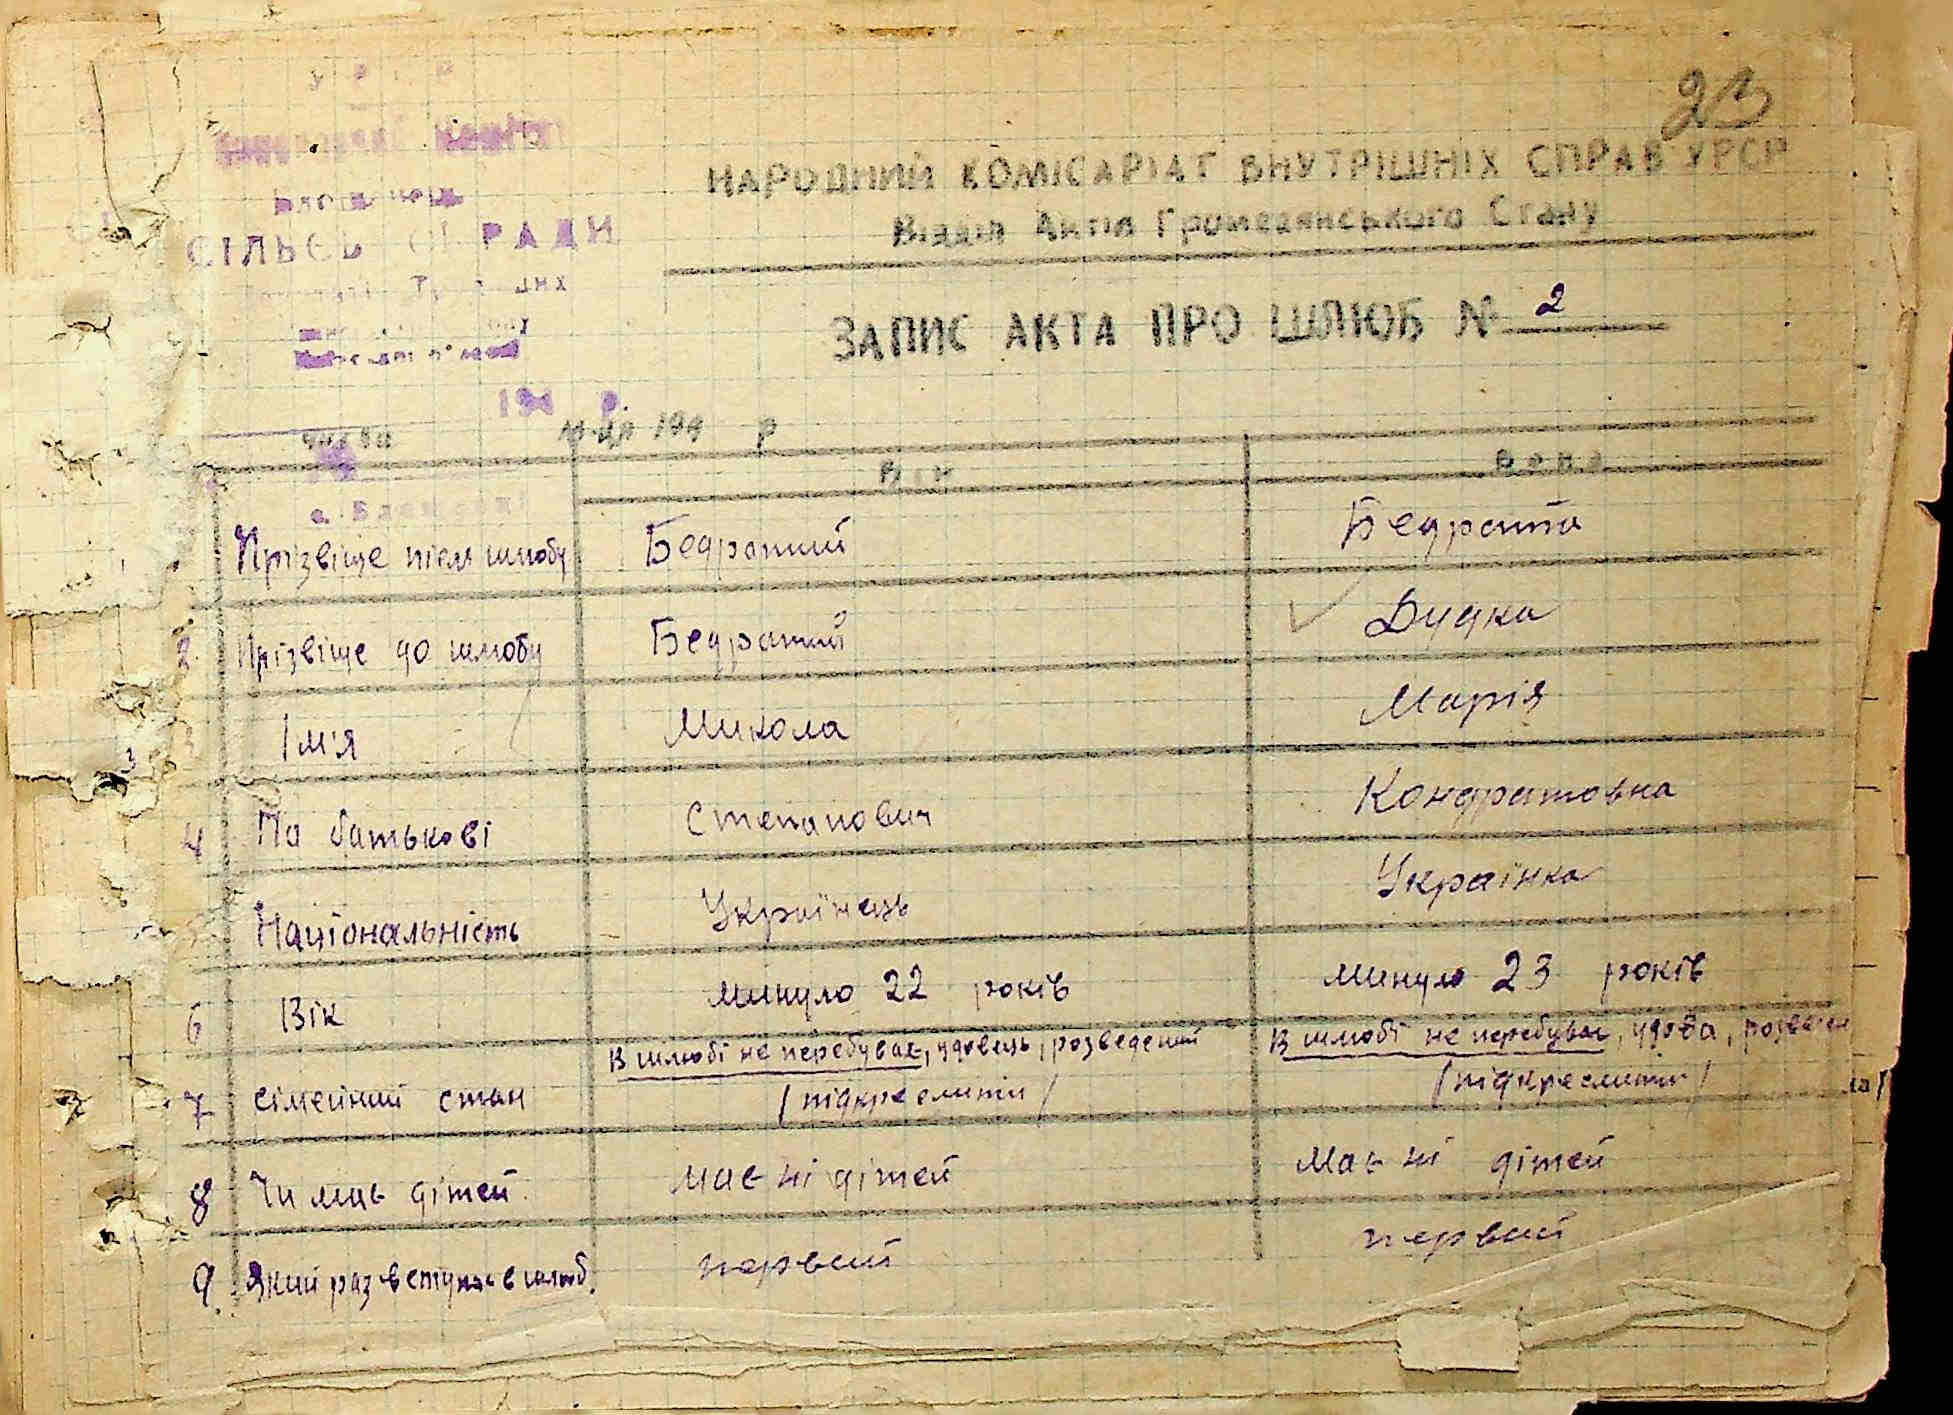 23
НАРОДНИЙ КОМІСАРІАТ ВНУТРІШНІХ СПРАВ УРСР
Відділ Актів Громадянського Стану
СІЛЬС РАДИ
ЗАПИС АКТА ПРО ШЛЮБ № 2
194 р.
194 р
Він Вона
Прізвіще після шлюбу Бедратий Бедрата
2 Прізвіще до шлюбу Бедратий Дудка
3 Ім'я Микола Марія
4 По батькові Степанович Кондратовна
Національність Українець Українка
6 Вік минуло 22 років минуло 23 років
7 сімейний стан В шлюбі не перебуває, удовець, розведений В шлюбі не перебуває, удова, розведен
/підкреслити/ /підкреслити/
8 Чи має дітей має ні дітей має ні дітей
9 Який раз вступає в шлюб. первий первий